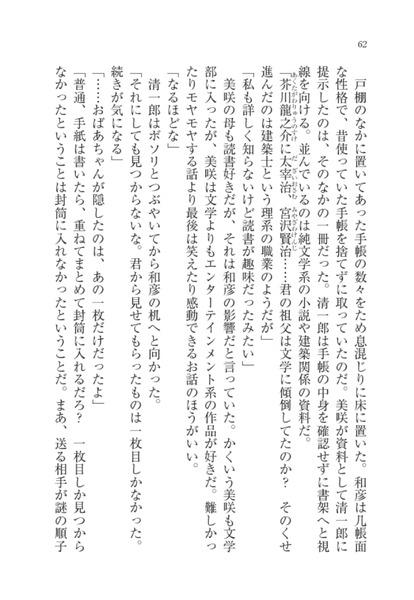 62
戸棚のなかに置いてあった手帳の数々をため息混じりに床に置いた。和彦は几帳面
な性格で、昔使っていた手帳を捨てずに取っていたのだ。美咲が資料として清一郎に
提示したのは、そのなかの一冊だった。清一郎は手帳の中身を確認せずに書架へと視
線を向ける。並んでいるのは純文学系の小説や建築関係の資料だ。
「芥川龍之介に太宰治、宮沢賢治……君の祖父は文学に傾倒してたのか？　そのくせ
進んだのは建築士という理系の職業のようだが」
「私も詳しく知らないけど読書が趣味だったみたい」
美咲の母も読書好きだが、それは和彦の影響だと言っていた。かくいう美咲も文学
部に入ったが、美咲は文学よりもエンターテインメント系の作品が好きだ。難しかっ
たりモヤモヤする話より最後は笑えたり感動できるお話のほうがいい。
「なるほどな」
清一郎はボソリとつぶやいてから和彦の机へと向かった。
「それにしても見つからないな。君から見せてもらったものは一枚目しかなかった。
続きが気になる」
「……おばあちゃんが隠したのは、あの一枚だけだったよ」
「普通、手紙は書いたら、重ねてまとめて封筒に入れるだろ？　一枚目しか見つから
なかったということは封筒に入れなかったということだ。まあ、送る相手が謎の順子